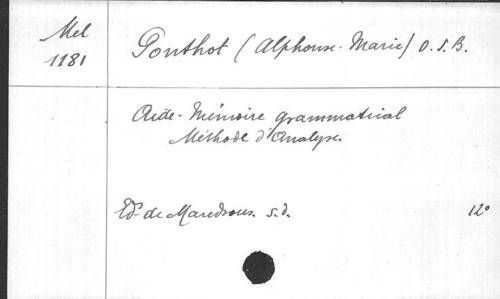 Mel
1181
Ponthot (Alphonse-Marie) O.S.B.
Aide-Mémoire grammatical
Méthode d'Analyse.
Ed. de Maredsous. s.d.
12°